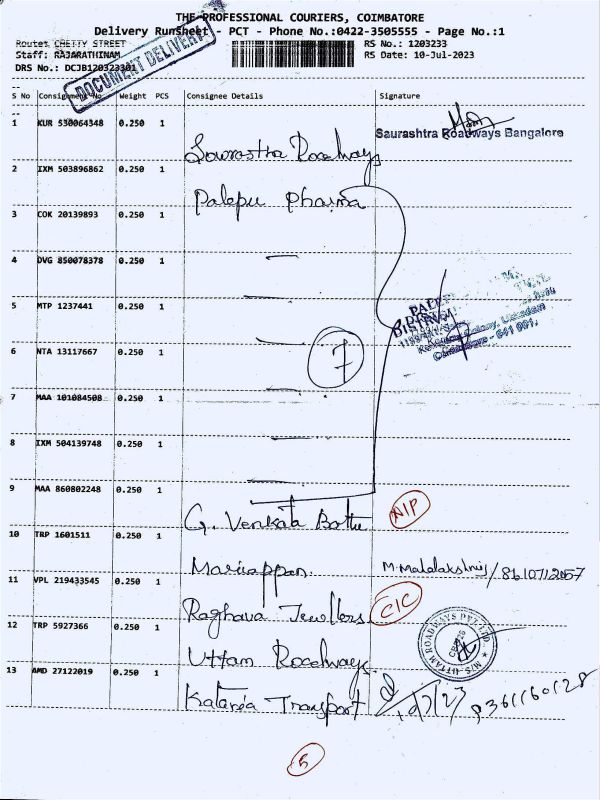 THE PROFESSIONAL COURIERS, COIMBATORE
Delivery Runsheet - PCT - Phone No.:0422-3505555 - Page No.:1
Route: CHETTY STREET RS No.: 1203233
Staff: RAJARATHINAM RS Date: 10-Jul-2023
DRS No.: DCJB120323301
DOCUMENT DELIVERY
S No Consignment No. Weight PCS Consignee Details Signature
1 KUR 530064348 0.250 1 Sowrastra Roadways Saurashtra Roadways Bangalore
2 IXM 503896862 0.250 1 Palepu Pharma
3 COK 20139893 0.250 1
4 DVG 850078378 0.250 1
5 MTP 1237441 0.250 1
6 NTA 13117667 0.250 1
7
7 MAA 101084508 0.250 1
8 IXM 504139748 0.250 1
9 MAA 860802248 0.250 1 G. Venkata Bothu N/P
10 TRP 1601511 0.250 1 Mariappan
11 VPL 219433545 0.250 1 Raghava Jewellers C/C
12 TRP 5927366 0.250 1 Uttam Roadways M/S. UTTAM ROADWAYS PVT LTD
13 AMD 27122019 0.250 1 Kataria Transport
5